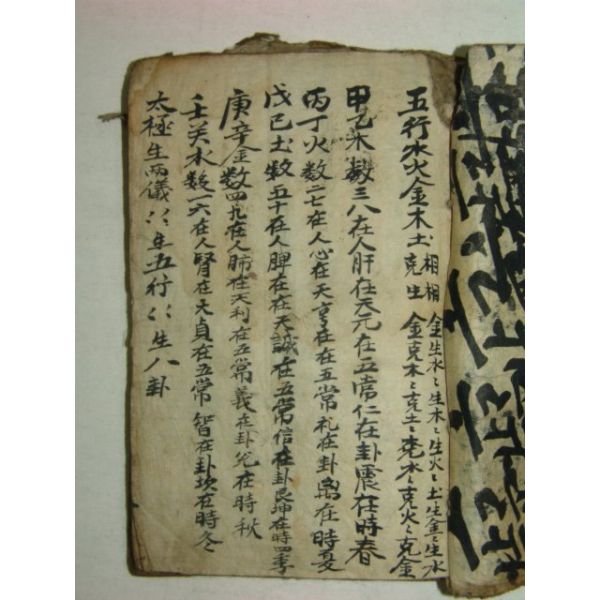 五行水火金木土 相生 相克 金生水〻生木〻生火〻土生金〻生水 金克木〻克土〻克水〻克火〻克金
甲乙木数三八在人肝在天元在五常仁在卦震在時春
丙丁火数二七在人心在天亨在在五常礼在卦离在時夏
戊己土数五十在人脾在在天誠在五常信在卦艮坤在時四季
庚辛金数四九在人肺在天利在五常義在卦兌在時秋
壬癸水数一六在人腎在天貞在五常智在卦坎在時冬
太極生兩儀〻〻生五行〻〻生八卦